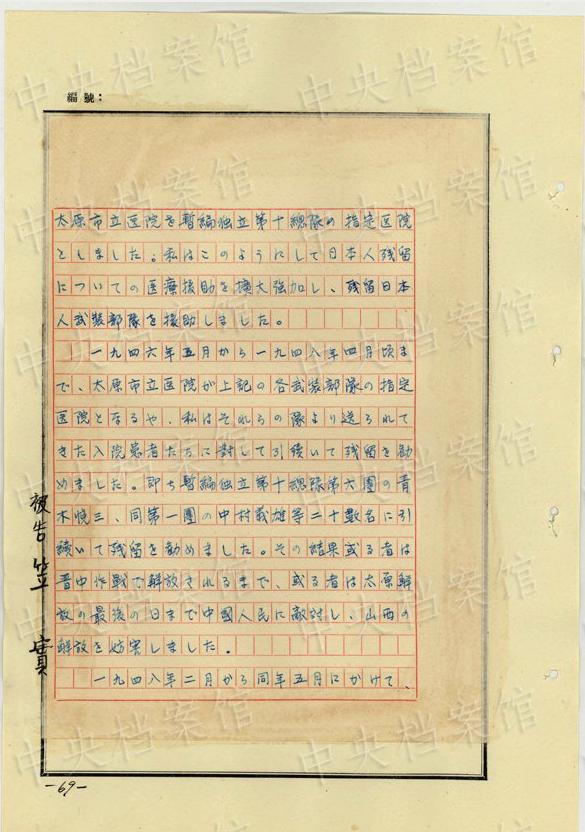 編號：
太原市立医院を暫編独立第十總隊の指定医院
としました。私はこのようにして日本人残留
についての医療援助を擴大強加し、残留日本
人武装部隊を援助しました。
一九四六年五月から一九四八年四月頃ま
で、太原市立医院が上記の各武装部隊の指定
医院となるや、私はそれらの隊より送られて
きた入院患者たちに對して引續いて残留を勧
めました。即ち暫編独立第十總隊第六團の青
木悦三、同第一團の中村義雄等二十數名に引
續いて残留を勧めました。その結果或る者は
晋中作戦で解放されるまで、或る者は太原解
放の最後の日まで中國人民に敵対し、山西の
解放を妨害しました。
一九四八年二月から同年五月にかけて、
被告 笠 實
-69-
中央档案馆